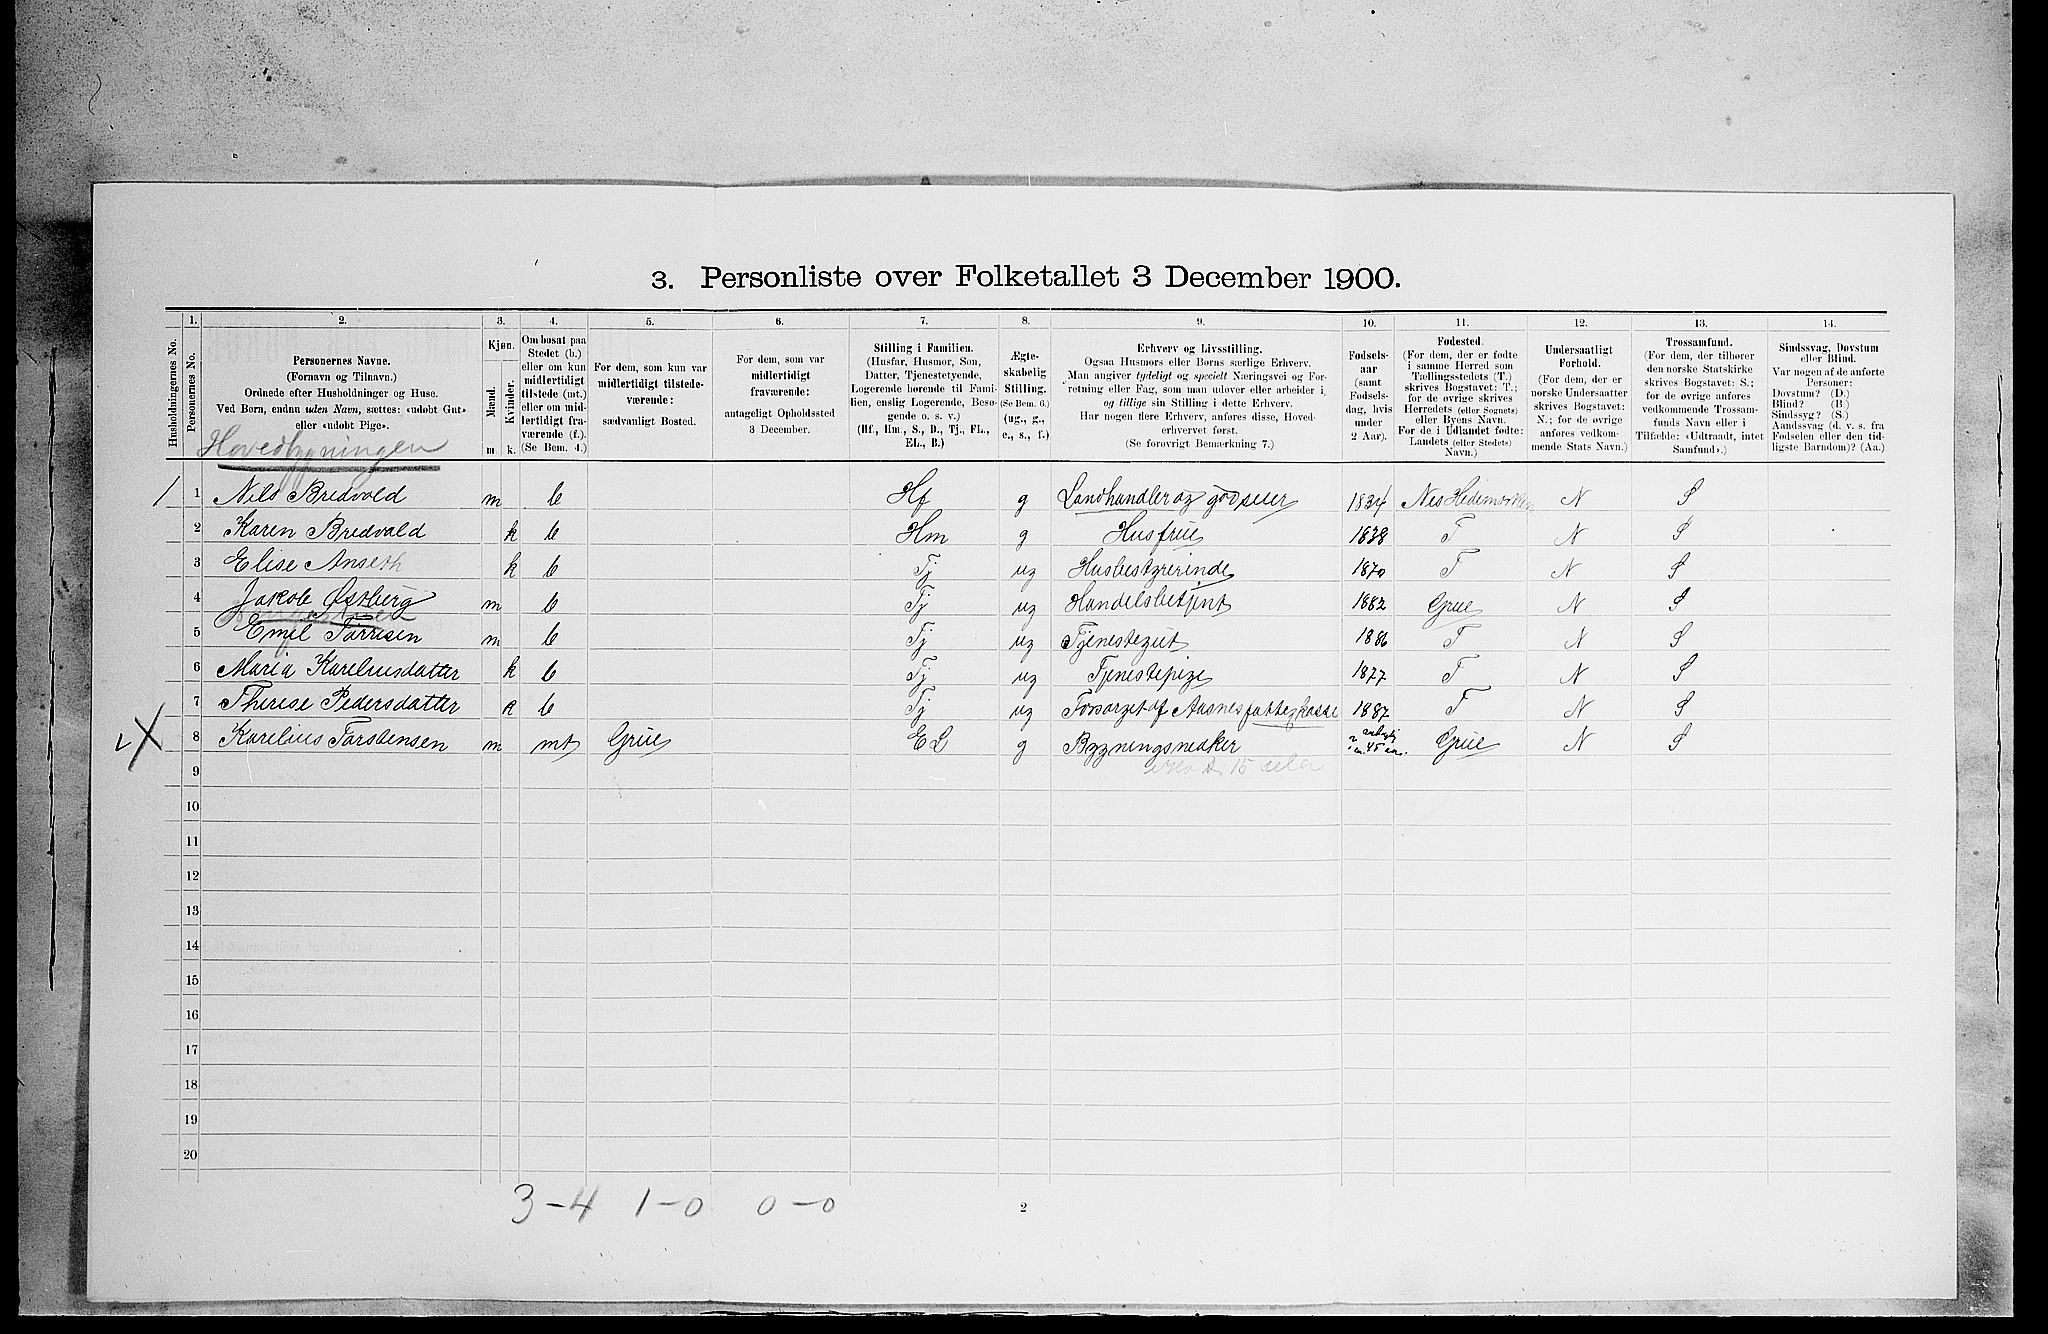 3. Personliste over Folketallet 3 December 1900.
1. 2. 3. 4. 5. 6. 7. 8. 9. 10. 11. 12. 13. 14.
Husholdningernes No.
Personernes No.
Personernes Navne.
(Fornavn og Tilnavn.)
Ordnede efter Husholdninger og Huse.
Ved Børn, endnu uden Navn, sættes: «udøbt Gut»
eller «udøbt Pige».
Hovedbygningen
Kjøn.
Mænd. Kvinder.
m k.
Om bosat paa
Stedet (b.)
eller om kun
midlertidigt
tilstede (mt.)
eller om mid-
lertidigt fra-
værende (f.).
(Se Bem. 4.)
For dem, som kun var
midlertidigt tilstede-
værende:
sædvanligt Bosted.
For dem, som var
midlertidigt
fraværende:
antageligt Opholdssted
3 December.
Stilling i Familien.
(Husfar, Husmor, Søn,
Datter, Tjenestetyende,
Logerende hørende til Fami-
lien, enslig Logerende, Besø-
gende o. s. v.)
(Hf., Hm., S., D., Tj., FL.,
EL., B.)
Ægte-
skabelig
Stilling.
(Se Bem. 6.)
(ug., g.,
e., s., f.)
Erhverv og Livsstilling.
Ogsaa Husmors eller Børns særlige Erhverv.
Man angiver tydeligt og specielt Næringsvei og For-
retning eller Fag, som man udøver eller arbeider i,
og tillige sin Stilling i dette Erhverv.
Har nogen flere Erhverv, anføres disse, Hoved-
erhvervet først.
(Se forøvrigt Bemærkning 7.)
Fødsels-
aar
(samt
Fødsels-
dag, hvis
under
2 Aar).
Fødested.
(For dem, der er fødte
i samme Herred som
Tællingsstedets (T.)
skrives Bogstavet: T.;
for de øvrige skrives
Herredets (eller Sognets)
eller Byens Navn.
For de i Udlandet fødte:
Landets (eller Stedets)
Navn.)
Undersaatligt
Forhold.
(For dem, der er
norske Undersaatter
skrives Bogstavet:
N.; for de øvrige
anføres vedkom-
mende Stats Navn.)
Trossamfund.
(For dem, der tilhører
den norske Statskirke
skrives Bogstavet: S.;
for de øvrige anføres
vedkommende Trossam-
funds Navn eller i
Tilfælde: «Udtraadt, intet
Samfund».)
Sindssvag, Døvstum
eller Blind.
Var nogen af de anførte
Personer:
Døvstum? (D.)
Blind? (B.)
Sindssyg? (S.)
Aandssvag (d. v. s. fra
Fødselen eller den tid-
ligste Barndom)? (Aa.)
1 1 Nils Bredvold m b Hf g Landhandler og godseier 1834 Nes Hedemarken N S
2 Karen Bredvold k b Hm g Husfrue 1838 T N S
3 Elise Anseth k b Tj ug Husbestyrerinde 1870 T N S
4 Jakob Østberg m b Tj ug Handelsbetjent 1882 Grue N S
5 Emil Torrisen m b Tj ug Tjenestegut 1886 T N S
6 Maria Kareliusdatter k b Tj ug Tjenestepige 1877 T N S
7 Therese Pedersdatter k b Tj ug Forsørget af Aasnes fattigkasse 1887 T N S
2 X 8 Karelius Torstensen m mt Grue EL g Bygningssnedker 45 Grue N S
9
10
11
12
13
14
15
16
17
18
19
20
3-4 1-0 0-0
2